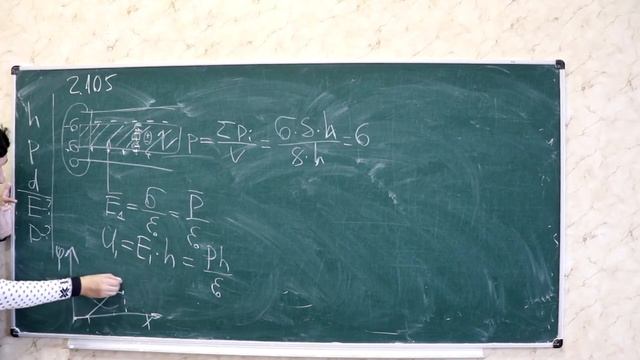 2.105
h
p
d
E?
P = Σpᵢ/V = σ·S·h/S·h = σ
E₁ = σ/ε₀ = P/ε₀
U₁ = E₁·h = Ph/ε
φ
x